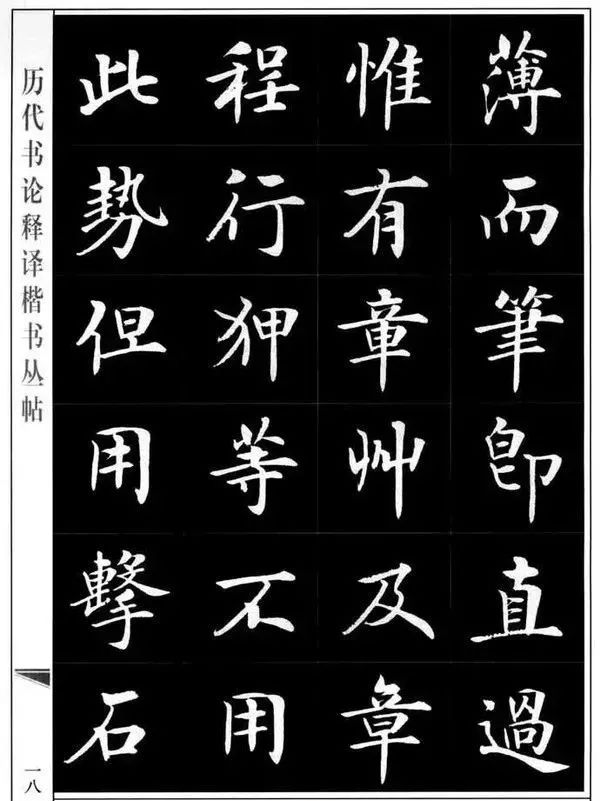 薄而筆即直過
惟有章艸及章
程行狎等不用
此勢但用擊石
历代书论释译楷书丛帖
一八